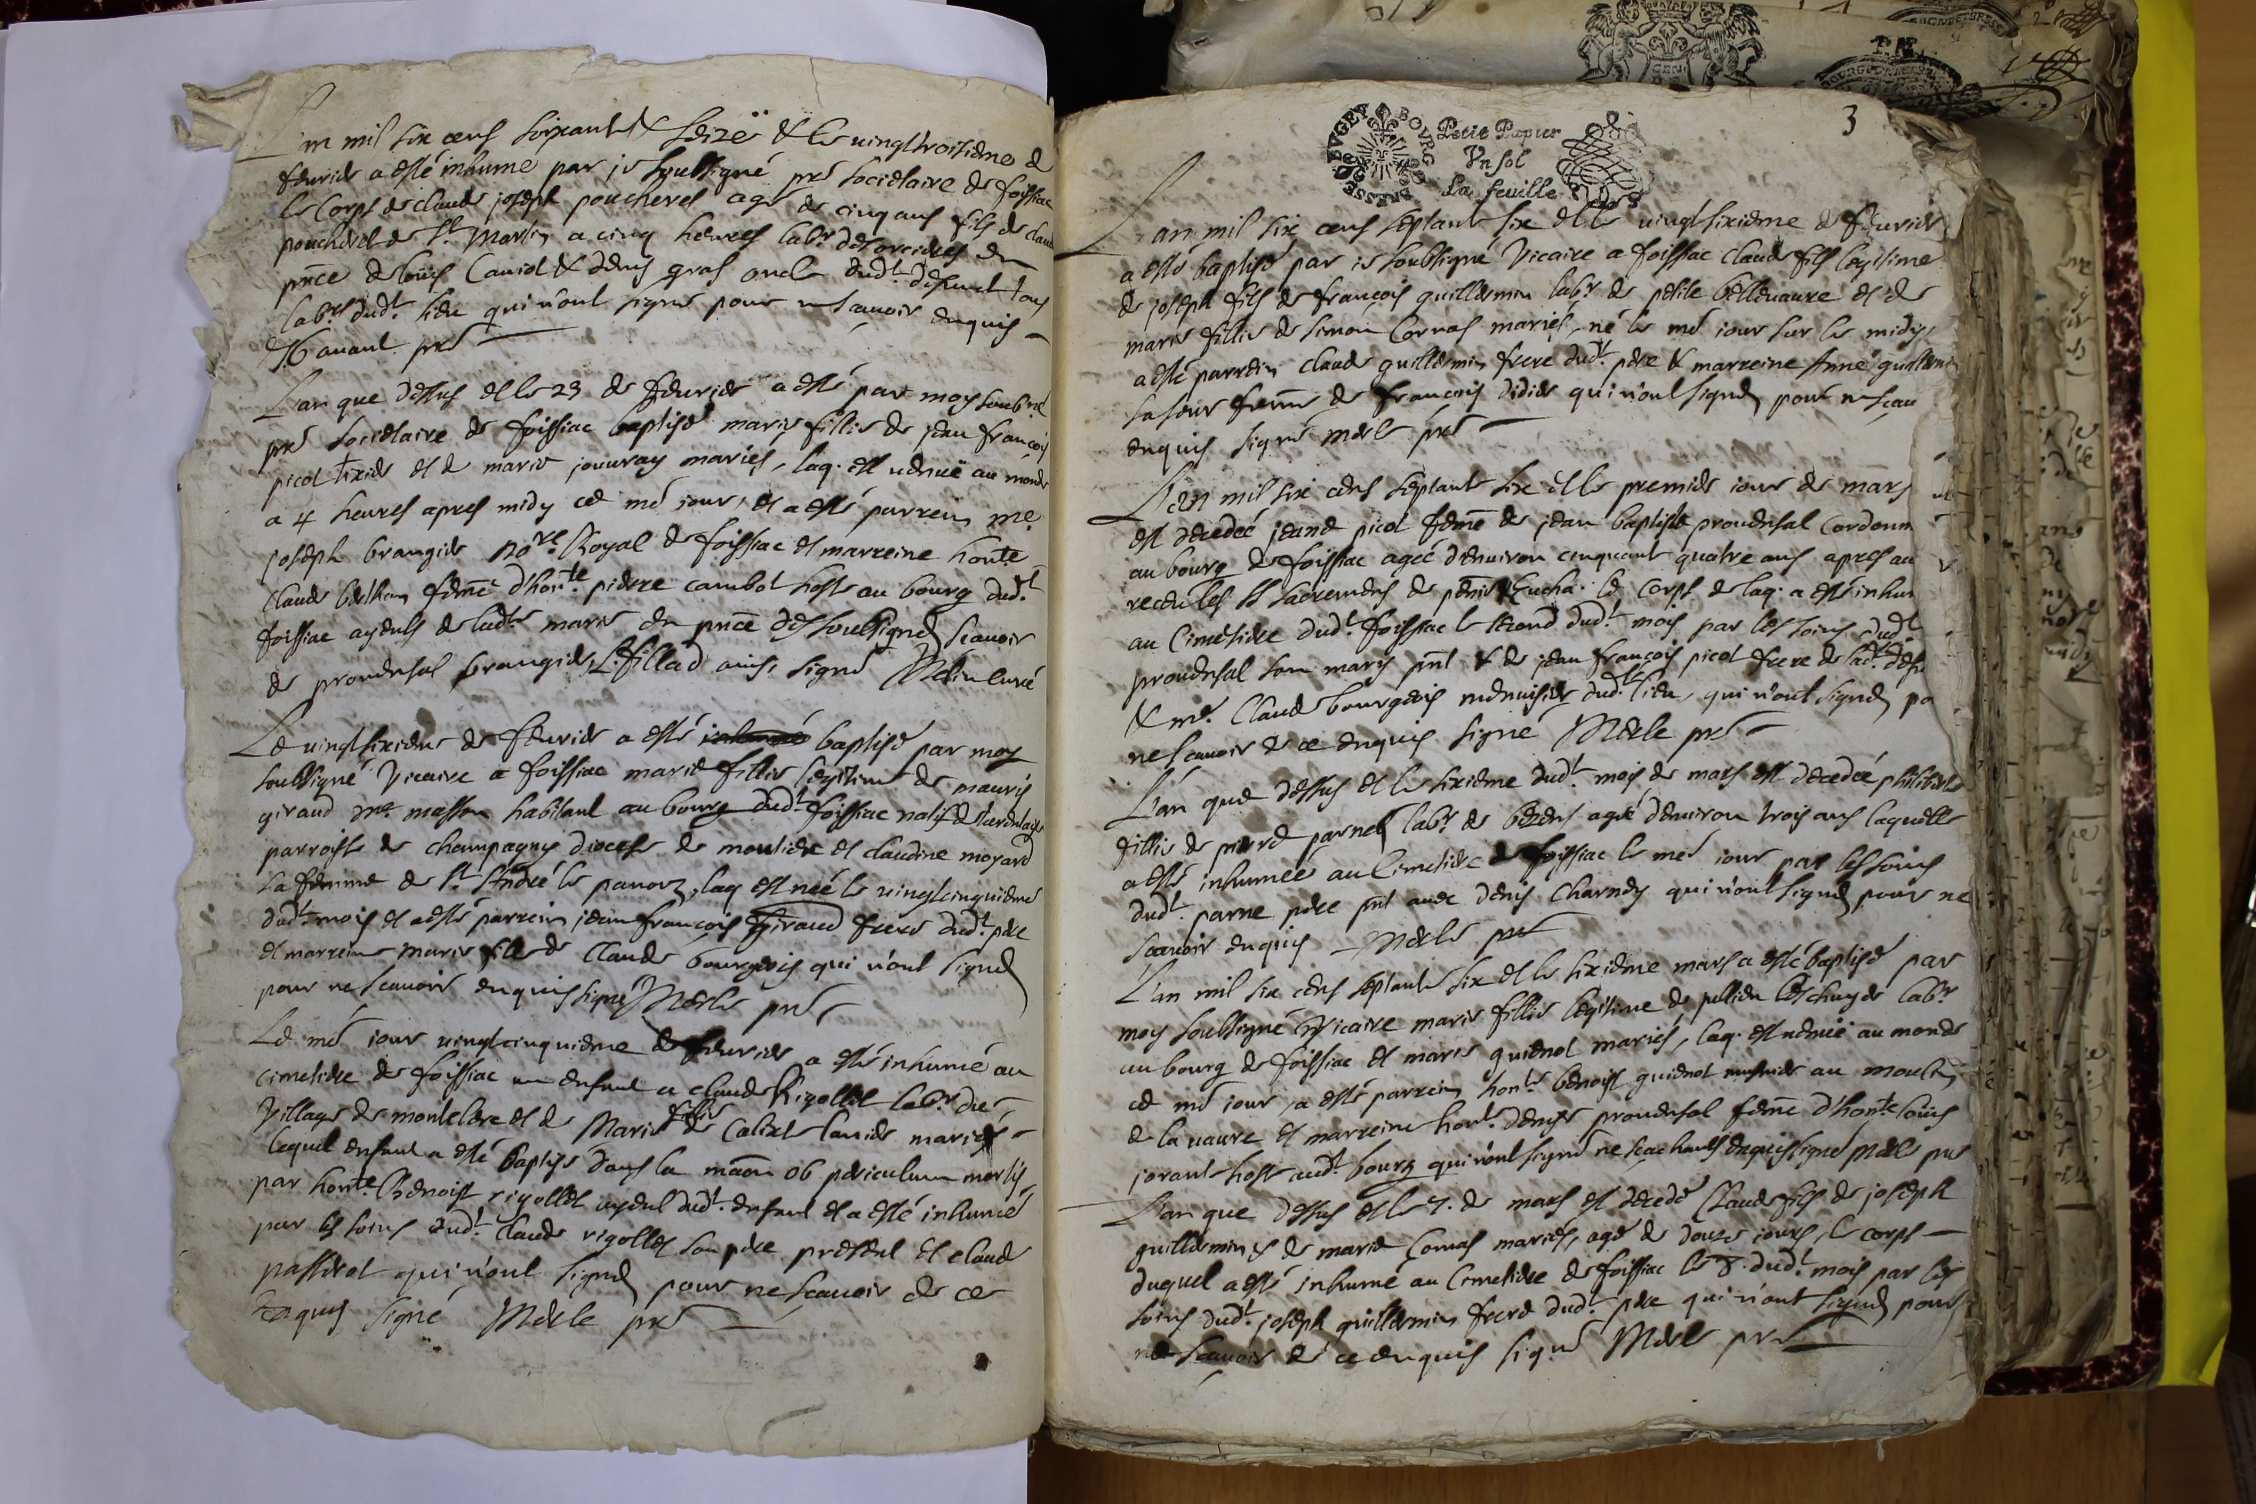 L'an mil six cens soixante & seize & le vingttroisieme de
feurier a esté inhumé par je soubsigné pre societaire de foissiac
le Corps de claude joseph poucherel agé de cinq ans fils de claude
poucherel de St. Martin a cinq heures labr
pnce de louis Caniot & denis gras oncle dudt. defunct tous
labrs dudt. lieu qui n'ont signé pour ne scauoir enquis
pre
L'an que dessus et le 23 de feurier a esté par moy soubsné
pre societaire de foissiac baptisé marie fillie de jean françois
picol tixier et de marie jouuray mariés, laq. est venuë au monde
a 4 heures apres midy ce mé iour, et a esté parrein me.
joseph brangier Nore. Royal de foissiac et marreine honte
Claude berthem femme d'honte. pierre cambot hoste au bourg dudt.
foissiac ayeuls de ladte marie en pnce des soubsignés scauoir
de prouensal brangier, L. fillad ainsi signé Melin curé
Le vingtsixieme de feurier a esté baptisé par moy
soubsigné Vicaire a foissiac marie fillie legitime de mauris
giraud me. masson habitant au bourg dudt. foissiac natif de
parroisse de champagny diocese de moutiere et claudine moyard
sa femme de St. André le panoux, laq est née le vingtcinquieme
dudt. mois et a esté parrein jean françois Giraud frere dudt. pere
et marreine marie fille de Claude bourgeois qui n'ont signés
pour ne scauoir enquis signé Merle pre
Le mé iour vingtcinquieme de feurier a esté inhumé au
cimetiere de foissiac un enfant a claude Rigollet labr. du
village de montclere et de Marie fillie de Calixt lanier mariés
lequel enfant a esté baptisé dans la maôn ob periculum mortis
par honte. Benoist rigollet ayeul dudt. enfant et a esté inhumé
par les soins dudt. Claude rigollet son pere present et claude
passerat qui n'ont signés pour ne scauoir de ce
enquis signé Merle pre
3
BRESSE BVGEY BOVRG
Petit Papier
Vn sol
La feuille
L'an mil six cens septante six et le vingtsixieme de feurier
a esté baptisé par je soubsigné Vicaire a foissiac Claude fils legitime
de joseph fils de françois guillermin labr. de petite bellevaure et de
marie fillie de simon Cornas mariés, né le mé iour sur le midy,
a esté parrein claude guillermin frere dudt. pere & marreine Anne guillermin
sa seur femme de françois didier qui n'ont signés pour ne scau
enquis signé Merle pre
L'an mil six cens septante six et le premier iour de mars
est decedée jeanne picot femme de jean baptiste prouensal Cordonn
au bourg de foissiac agée d'enuiron cinquant quatre ans apres au
receu les SS sacremens de penit & Eucha. le Corps de laq. a esté inhum
au Cimetiere dudt. foissiac le second dudt. mois par les soins dudt.
prouensal son mary pnt & de jean françois picot frere de lad. def
& me. Claude bourgeois menuisier dudt. lieu, qui n'ont signés po
ne scauoir de ce enquis signé Merle pre
L'an que dessus et le sixieme dudt. mois de mars est decedée philiberte
fillie de pierre parnel labr. de agée d'enuiron trois ans laquelle
a esté inhumée au Cimetiere de foissiac le mé iour par les soins
dudt. parne pere pnt auec denis Charnay qui n'ont signés pour ne
scauoir enquis Merle pre
L'an mil six cens septante six et le sixieme mars a esté baptisé par
moy soubsigné Vicaire marie fillie legitime de jullien leschuyer labr
au bourg de foissiac et marie guienot mariés, laq. est venuë au monde
ce mé iour, a esté parrein honte benoist guienot musnier au moulin
de la vaure et marreine hont. denyse prouensal femme d'honte louis
jorant hoste audt. bourg qui n'ont signé ne scachants enquis signé Merle pre
L'an que dessus et le 7. de mars est decedé Claude fils de joseph
guillermin et de marie Cornas mariés, agé de douze iours, le corps
duquel a esté inhumé au Cimetiere de foissiac le 8. dudt. mois par les
soins dudt. joseph guillermin frere dudt. pere qui n'ont signés pour
ne scauoir de ce enquis signé Merle pre